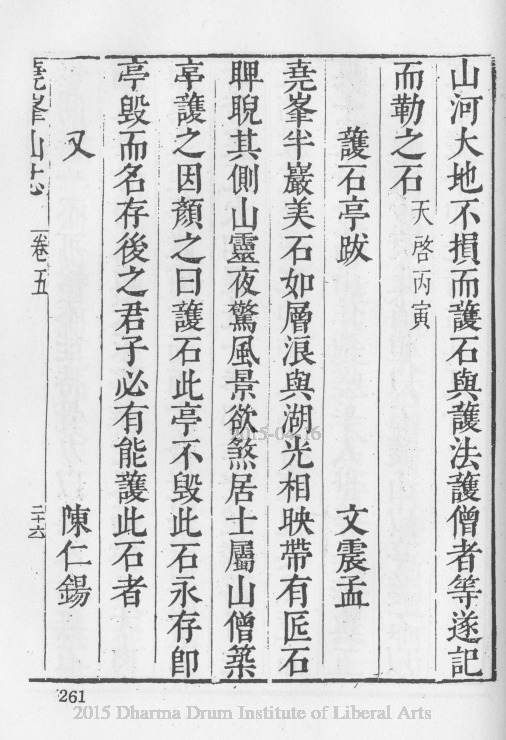 山河大地不損而護石與護法護僧者等遂記
而勒之石天啓丙寅
護石亭跋
文震孟
堯峯半巖美石如層浪與湖光相映帶有匠石
睥睨其側山靈夜驚風景欲煞居士屬山僧築
亭護之因顏之曰護石此亭不毀此石永存卽
亭毀而名存後之君子必有能護此石者
又
陳仁錫
堯峯山志
卷五
二十六
261
2015-04-16
2015 Dharma Drum Institute of Liberal Arts